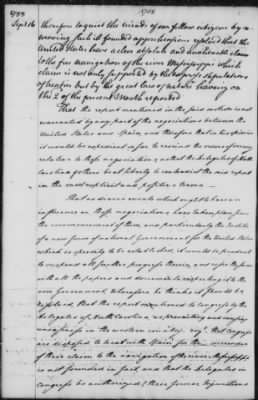 1788
Sept. 16
therefore to quiet the minds of our fellow citizens by re-
moving such ill founded apprehensions resolved that the
United States have a clear absolute and unalienable claim
to the free navigation of the river Mississippi which
claim is not only supported by the express stipulations
of treaties but by the great law of nature leaving on
the 2 of the present Month reported
That the report mentioned in the said motion is not
warranted by any part of the negotiations between the
United States and Spain, and therefore that in his opinion
it would be expedient so far to rescind the orders of secrecy
relative to those negotiations as that the delegates of North
Carolina & others be at liberty to contradict the said report
in the most explicit and positive terms
That as diverse events which ought to have an
influence on those negotiations have taken place since
the commencement of them, and particularly the institution
of a new form of national Government for the United States
which is speedily to be established, it would be prudent
to suspend all further progress therein, and refer the same
with all the papers and documents respecting it to the
new Government, wherefore he thinks it should be
resolved, that the report mentioned to congress by the
delegates of North Carolina, as prevailing and creating
uneasiness in the western country, viz. that Congress
are disposed to treat with Spain for the surrender
of their claim to the navigation of the river Mississippi
is not founded in fact, and that the delegates in
congress be authorised, (these former Injunctions